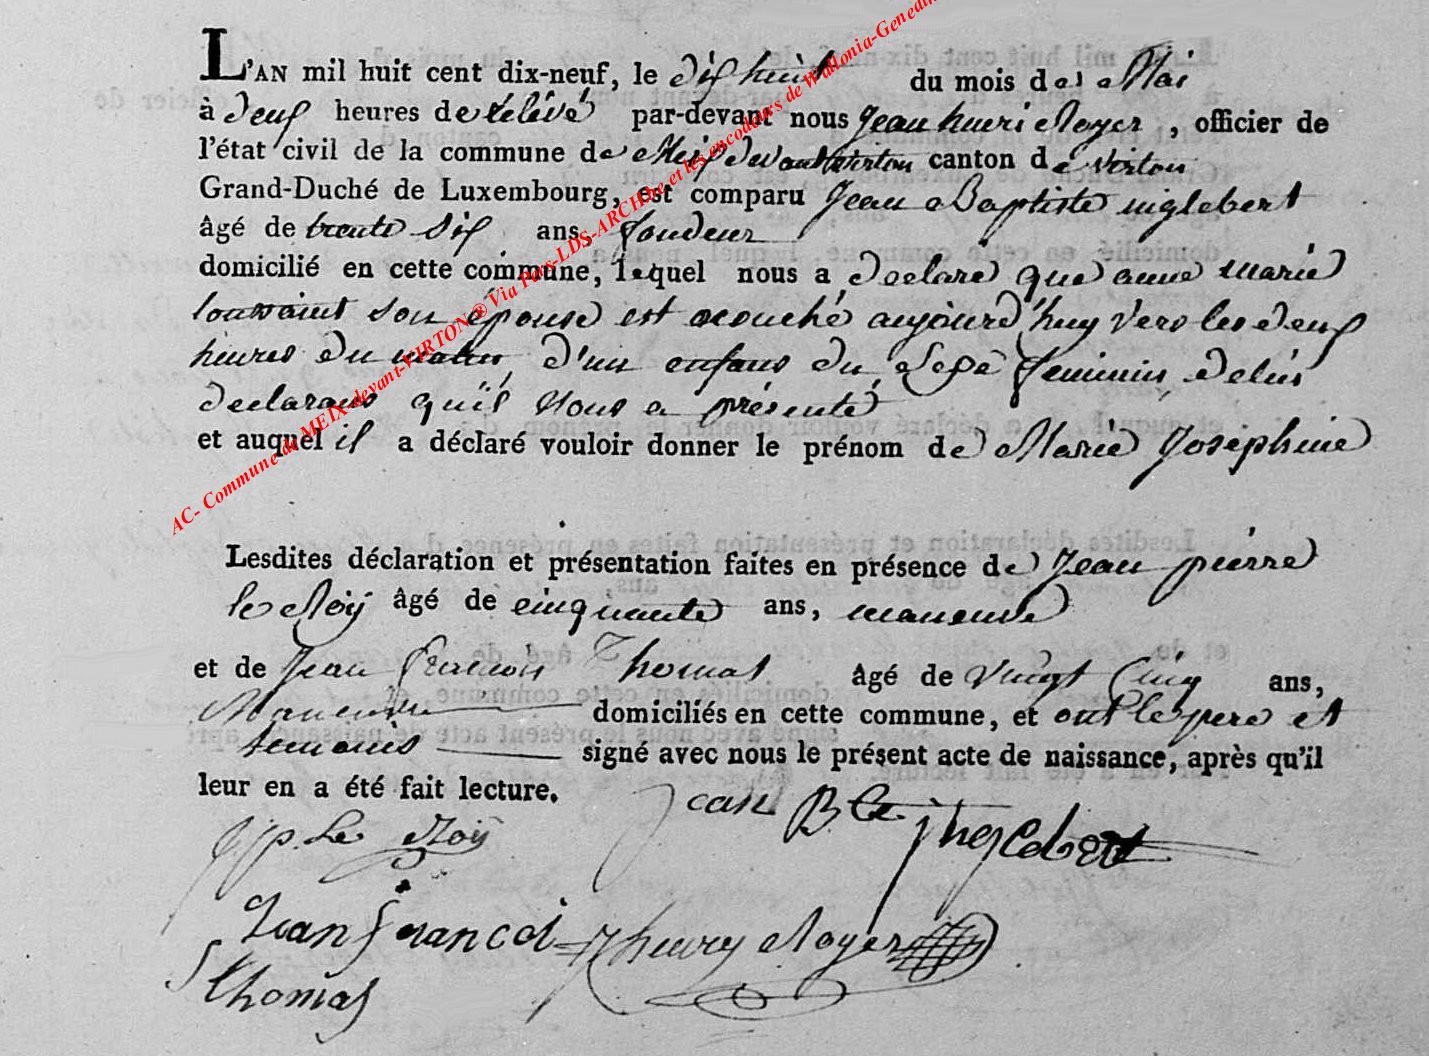 L'AN mil huit cent dix-neuf, le dix huit du mois de Mai
à deux heures de relévé par-devant nous Jean henri Royer, officier de
l'état civil de la commune de Meix devant virton canton de virton
Grand-Duché de Luxembourg, est comparu Jean Baptiste inglebert
âgé de trente Six ans, fondeur
domicilié en cette commune, lequel nous a declaré que anne marie
toussaint son épouse est acouché aujourd'huy vers les deux
heures du matin, d'un enfans du Sexe feminin, delui
declarans qu'il nous a présenté
et auquel il a déclaré vouloir donner le prénom de Marie Josephine
Lesdites déclaration et présentation faites en présence de Jean pierre
le Roÿ âgé de cinquante ans, maneuvre
et de Jean francois Thomas âgé de vingt Cinq ans,
Maneuvre domiciliés en cette commune, et ont le pere et
temoins signé avec nous le présent acte de naissance, après qu'il
leur en a été fait lecture.
Jean Bte ingelebert
jp. Le Roÿ
Jean francoi
Thomas
henry Royer
AC- Commune de MEIX-devant-VIRTON ® Via Pars-LDS-ARCHbe et les encodeurs de Wallonia-Genedin